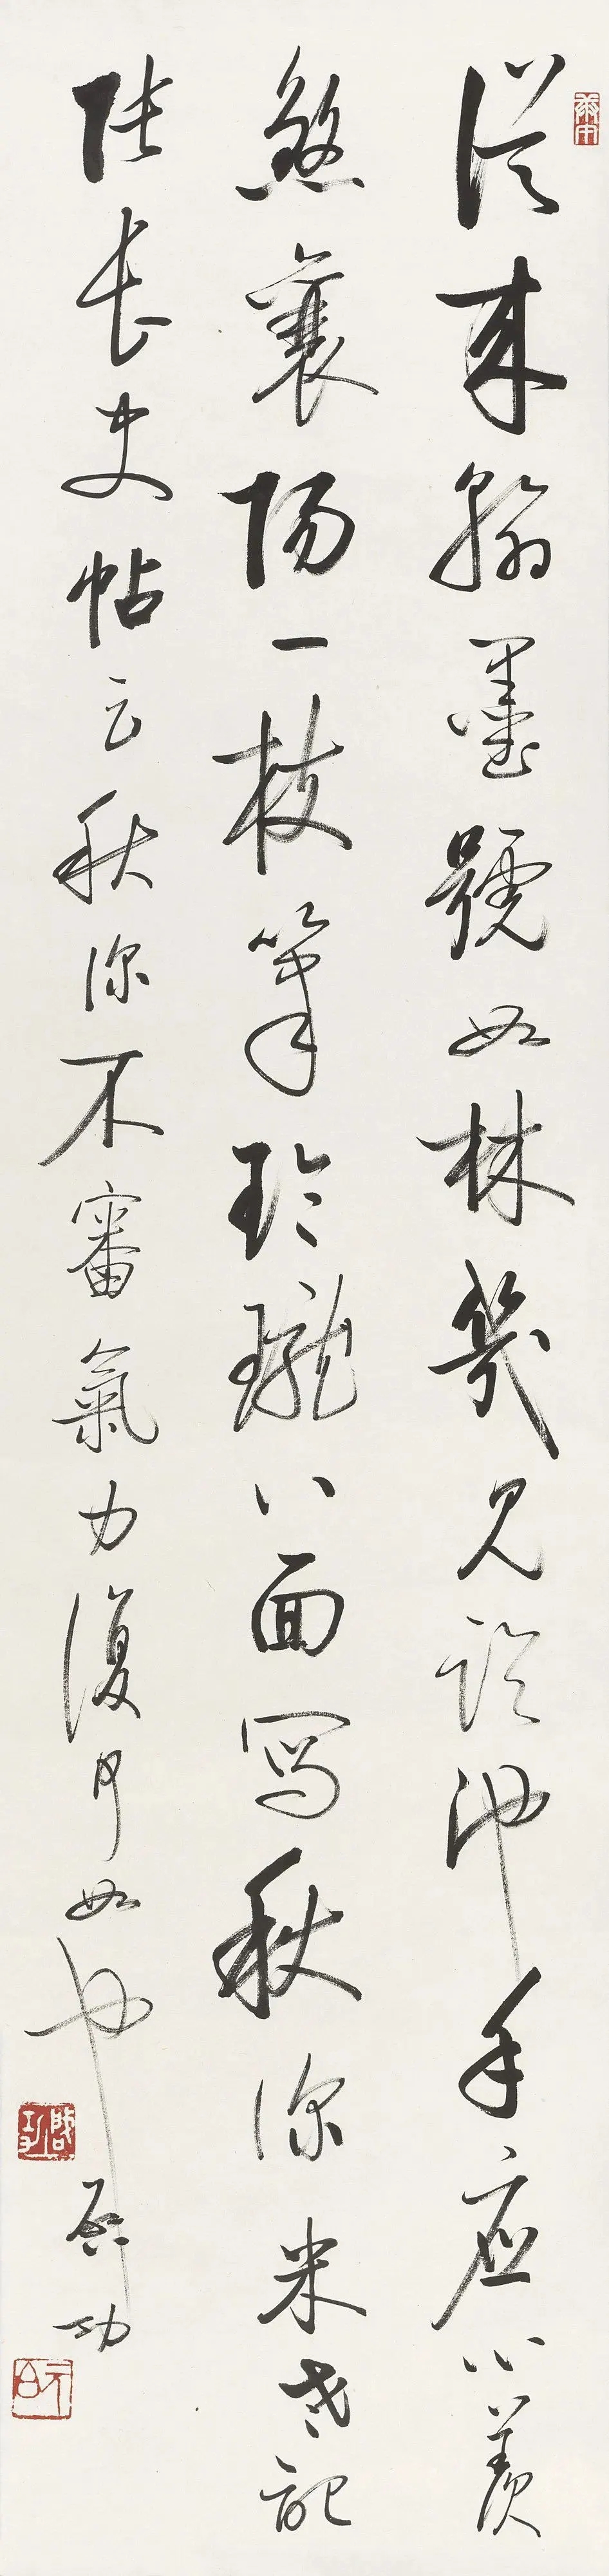 從來翰墨號如林幾見臨池手應心羨
煞襄陽一枝筆玲瓏八面寫秋深米老記
張長史帖云秋深不審氣力復何如也
啟功